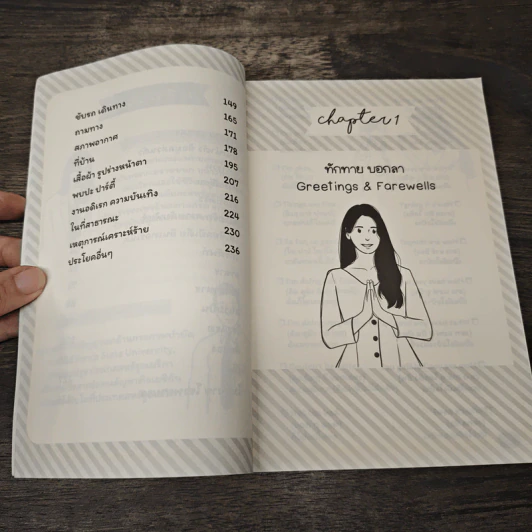 ขับรถ เดินทาง 149
ถามทาง 165
สภาพอากาศ 171
ที่บ้าน 178
เสื้อผ้า รูปร่างหน้าตา 195
พบปะ ปาร์ตี้ 207
งานอดิเรก ความบันเทิง 216
ในที่สาธารณะ 224
เหตุการณ์เคราะห์ร้าย 230
ประโยคอื่นๆ 236
chapter 1
ทักทาย บอกลา
Greetings & Farewells